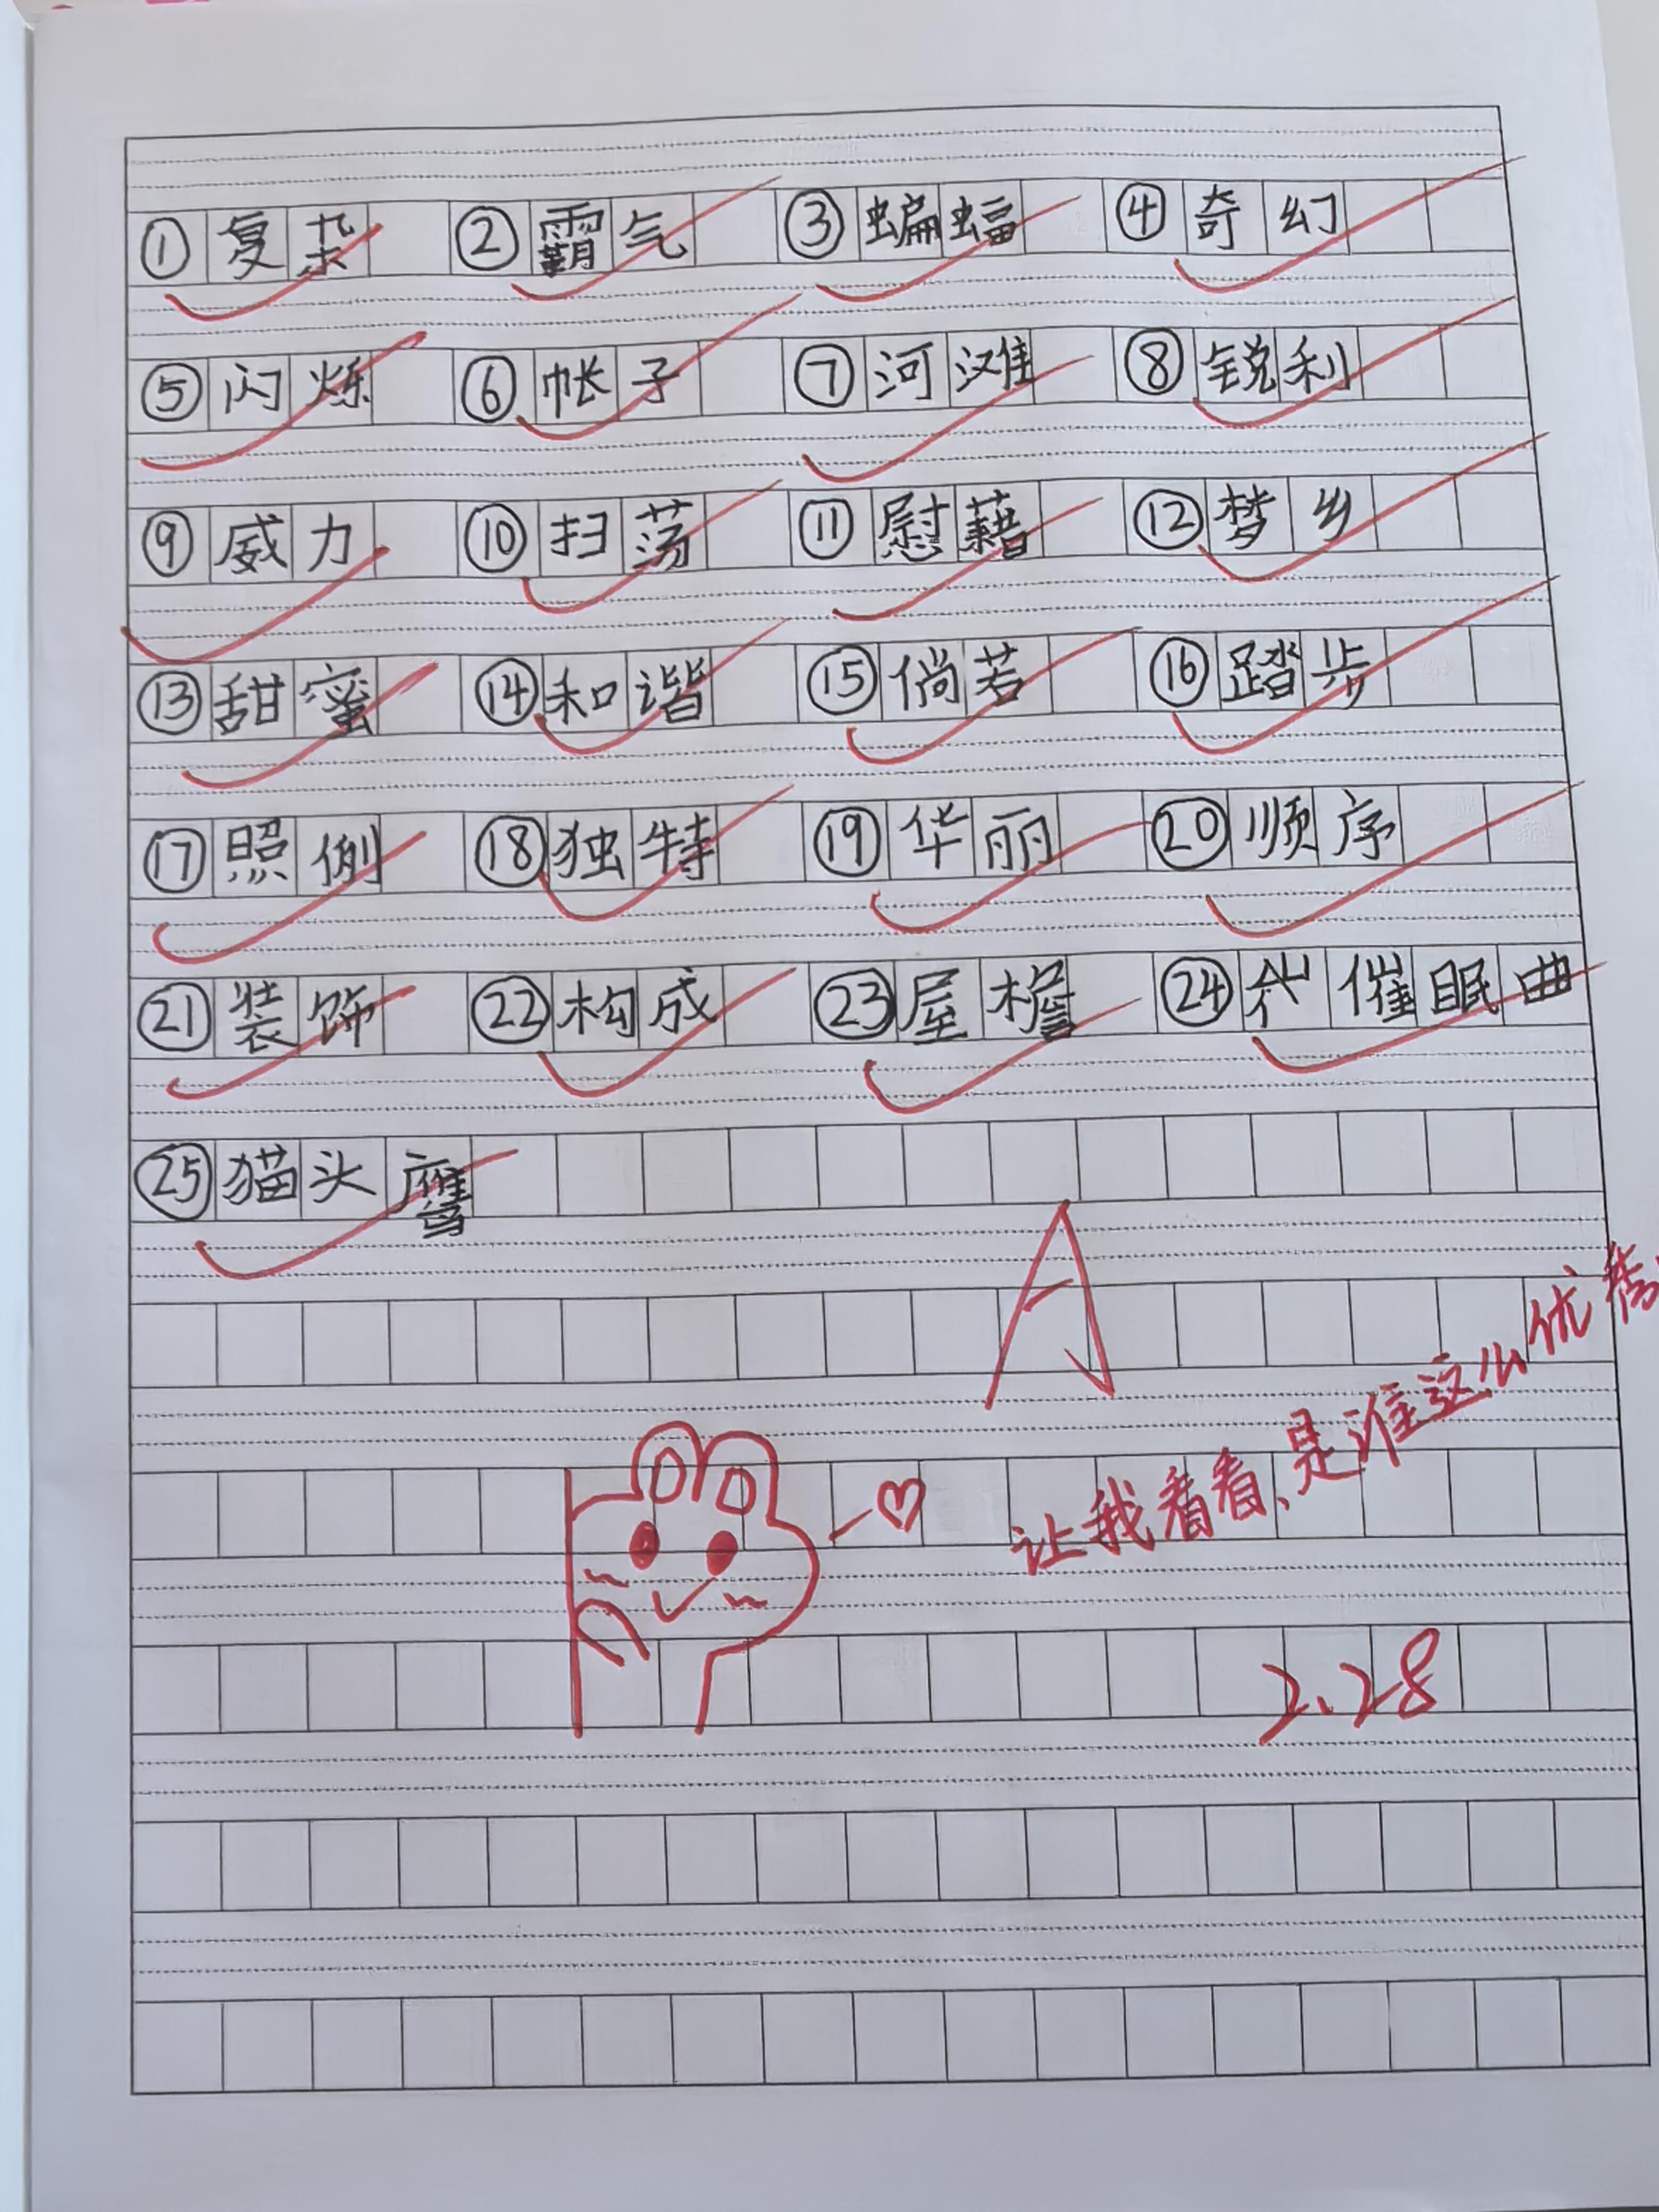 ①复杂 ②霸气 ③蝙蝠 ④奇幻
⑤闪烁 ⑥帐子 ⑦河滩 ⑧锐利
⑨威力 ⑩扫荡 ⑪慰藉 ⑫梦乡
⑬甜蜜 ⑭和谐 ⑮倘若 ⑯踏步
⑰照例 ⑱独特 ⑲华丽 ⑳顺序
㉑装饰 ㉒构成 ㉓屋檐 ㉔催眠曲
㉕猫头鹰
A
让我看看、是谁这么优秀
2.28